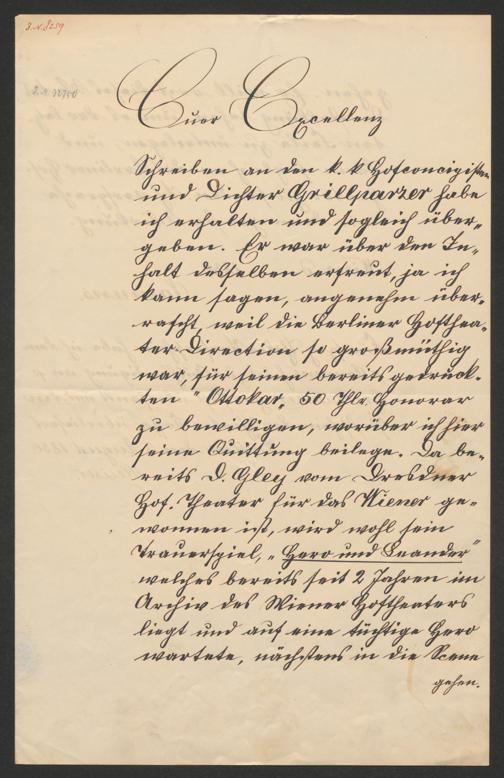 J.N. 8259
J.N. 32750
Euer Excellenz
Schreiben an den k. k Hofconcipisten
und Dichter Grillparzer habe
ich erhalten und sogleich über-
geben. Er war über den In-
halt desselben erfreut, ja ich
kann sagen, angenehm über-
rascht, weil die Berliner Hofthea-
ter-Direction so großmüthig
war, für seinen bereits gedruck-
ten "Ottokar„ 50 Thlr. Honorar
zu bewilligen, worüber ich hier
seine Quittung beilege. Da be-
reits D. Gley vom Dresdner
Hof-Theater für das Wiener ge-
wonnen ist, wird wohl sein
Trauerspiel, „Hero und Leander"
welches bereits seit 2 Jahren im
Archiv des Wiener Hoftheaters
liegt und auf eine tüchtige Hero
wartete, nächstens in die Scene
gehen.